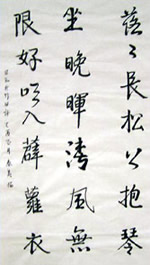 落々長松下抱琴
坐晚暉清風無
限好吹入薜蘿衣